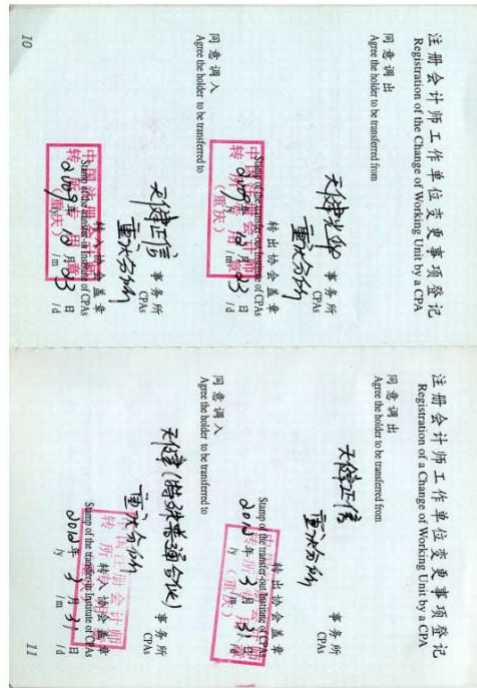 注册会计师工作单位变更事项登记
Registration of the Change of Working Unit by a CPA
同意调出
Agree the holder to be transferred from
天健光华
重庆分所
事务所
CPAs
转出协会盖章
Stamp of the transfer-out Institute of CPAs
中国注册会计师
转所专用章
(重庆)
2009年12月23日
/y /m /d
同意调入
Agree the holder to be transferred to
天健正信
重庆分所
事务所
CPAs
转入协会盖章
Stamp of the transfer-in Institute of CPAs
中国注册会计师
转所专用章
(重庆)
2009年12月23日
/y /m /d
10
注册会计师工作单位变更事项登记
Registration of a Change of Working Unit by a CPA
同意调出
Agree the holder to be transferred from
天健正信
重庆分所
事务所
CPAs
转出协会盖章
Stamp of the transfer-out Institute of CPAs
2012年3月31日
/y /m /d
同意调入
Agree the holder to be transferred to
天健(特殊普通合伙)
重庆分所
事务所
CPAs
转入协会盖章
Stamp of the transfer-in Institute of CPAs
2012年3月31日
/y /m /d
11